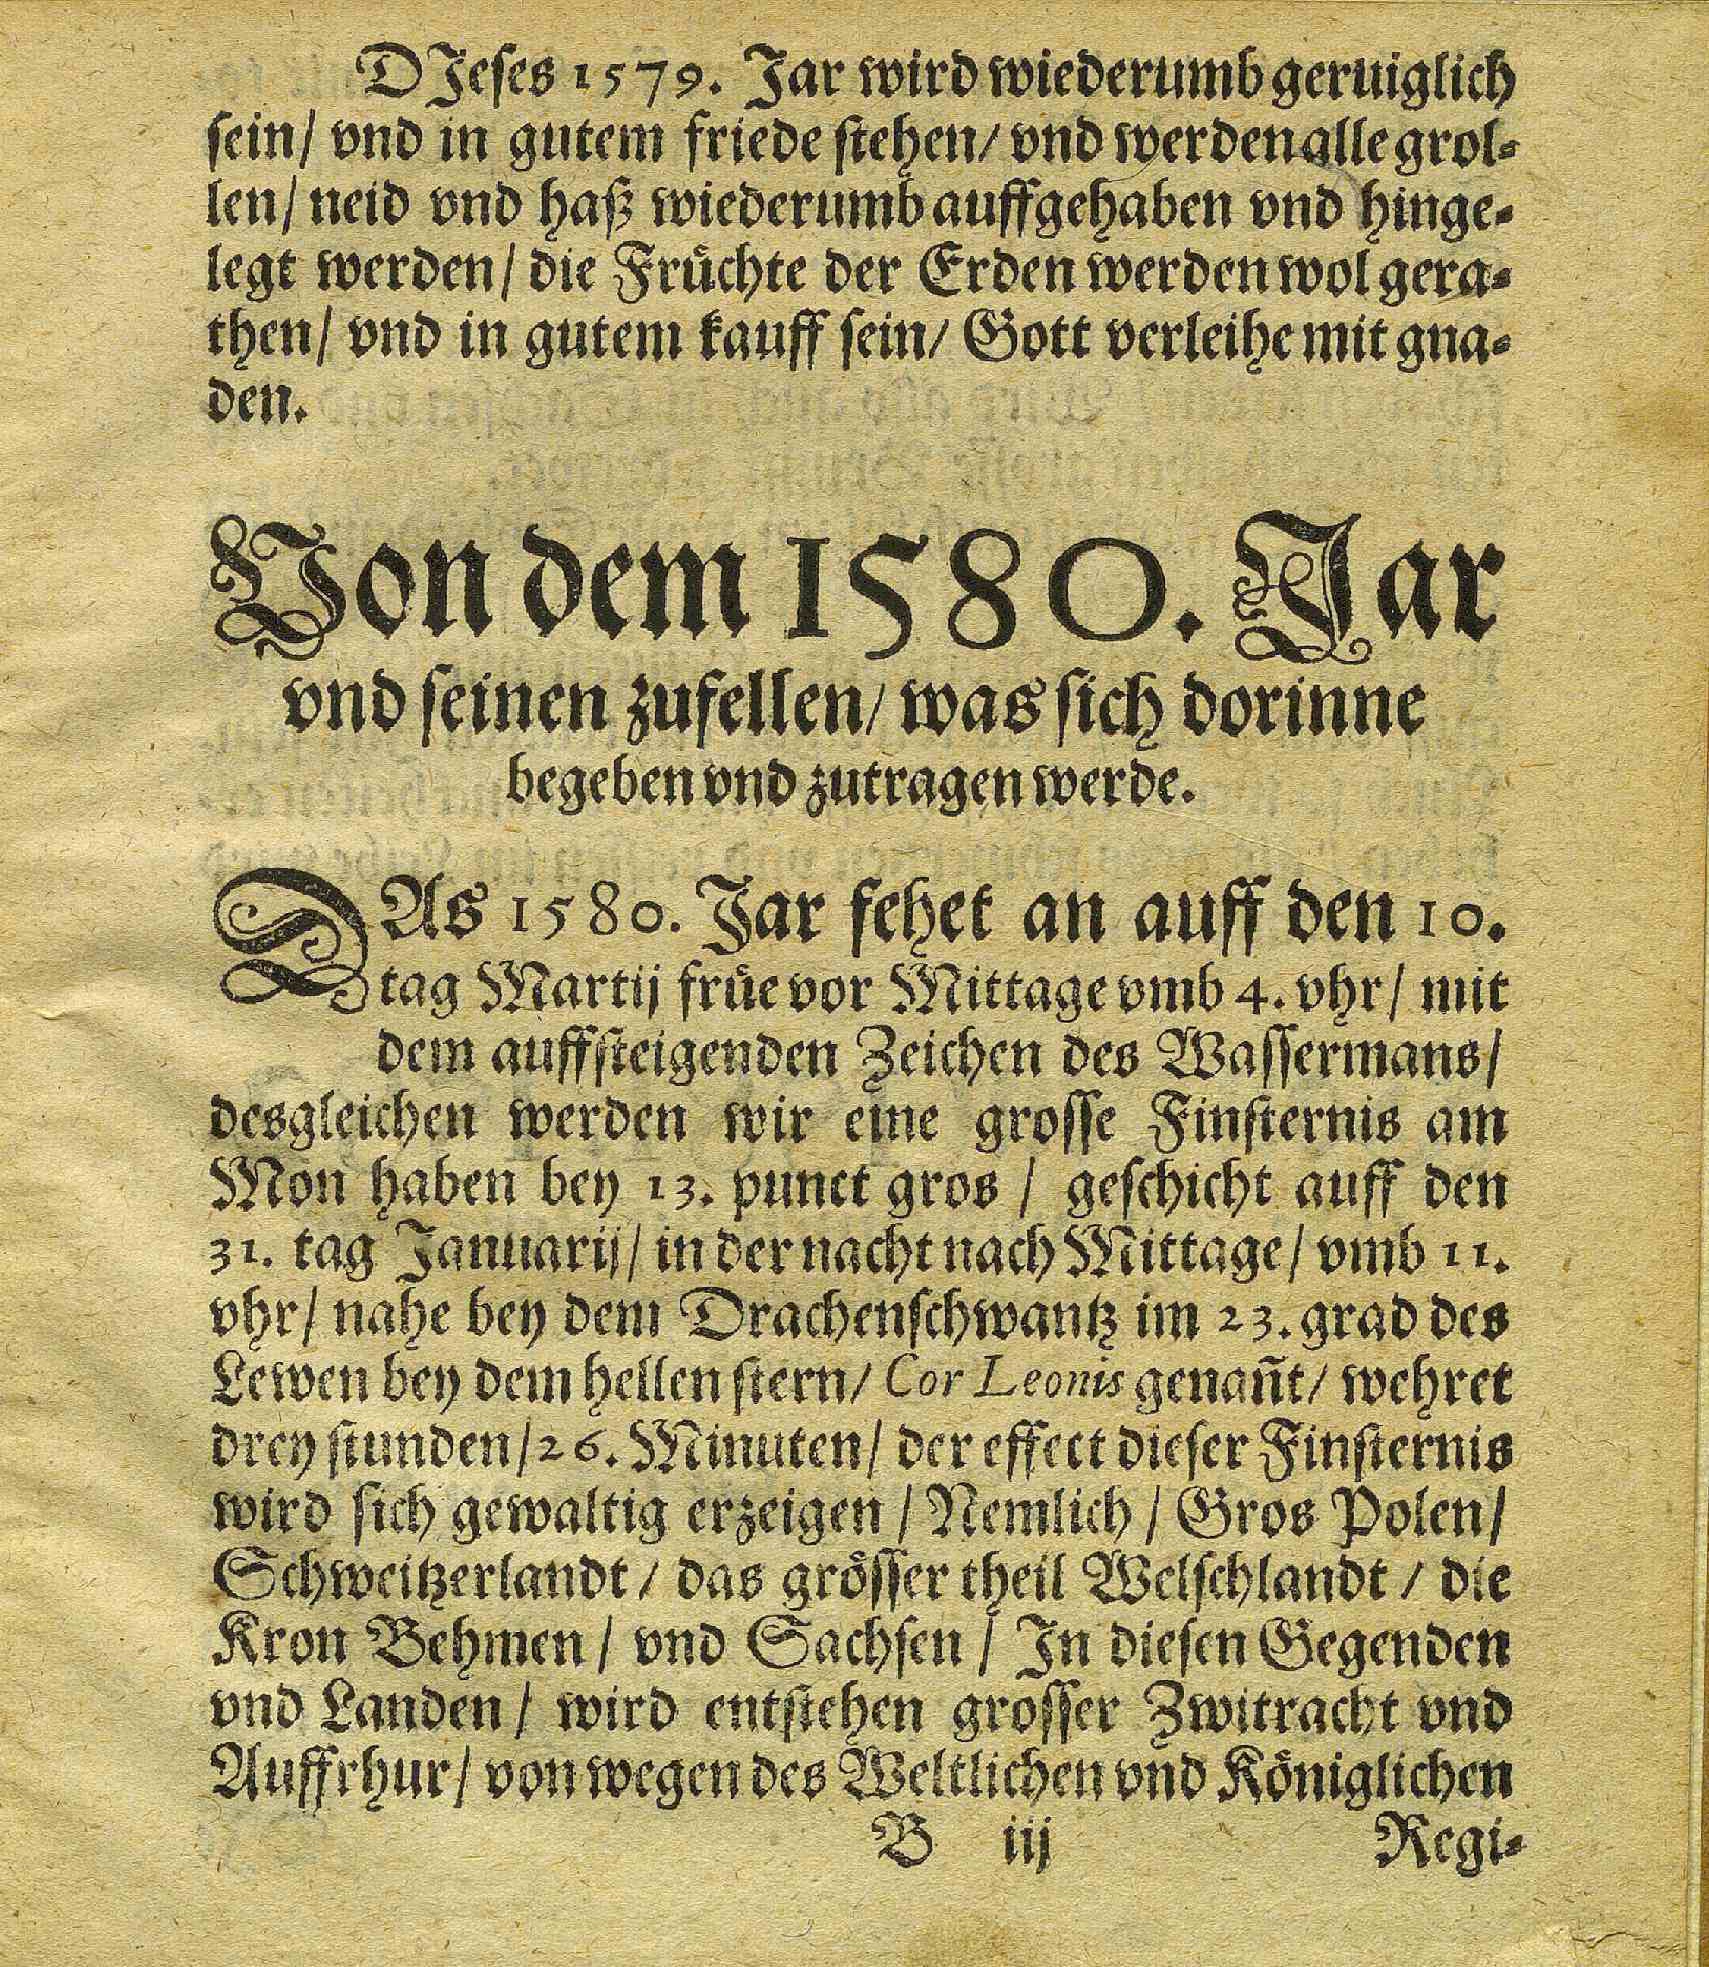 DJeses 1579. Jar wird wiederumb geruiglich
sein/ vnd in gutem friede stehen/ vnd werden alle grol-
len/ neid vnd haß wiederumb auffgehaben vnd hinge-
legt werden/ die Früchte der Erden werden wol gera-
then/ vnd in gutem kauff sein/ Gott verleihe mit gna-
den.
Von dem 1580. Jar
vnd seinen zufellen/ was sich dorinne
begeben vnd zutragen werde.
DAs 1580. Jar fehet an auff den 10.
tag Martij früe vor Mittage vmb 4. vhr/ mit
dem auffsteigenden Zeichen des Wassermans/
desgleichen werden wir eine grosse Finsternis am
Mon haben bey 13. punct gros / geschicht auff den
31. tag Januarij/ in der nacht nach Mittage/ vmb 11.
vhr/ nahe bey dem Drachenschwantz im 23. grad des
Lewen bey dem hellen stern/ Cor Leonis genañt/ wehret
drey stunden/ 26. Minuten/ der effect dieser Finsternis
wird sich gewaltig erzeigen / Nemlich / Gros Polen/
Schweitzerlandt / das grösser theil Welschlandt / die
Kron Behmen / vnd Sachsen / In diesen Gegenden
vnd Landen / wird entstehen grosser Zwitracht vnd
Auffrhur/ von wegen des Weltlichen vnd Königlichen
B iij Regi-